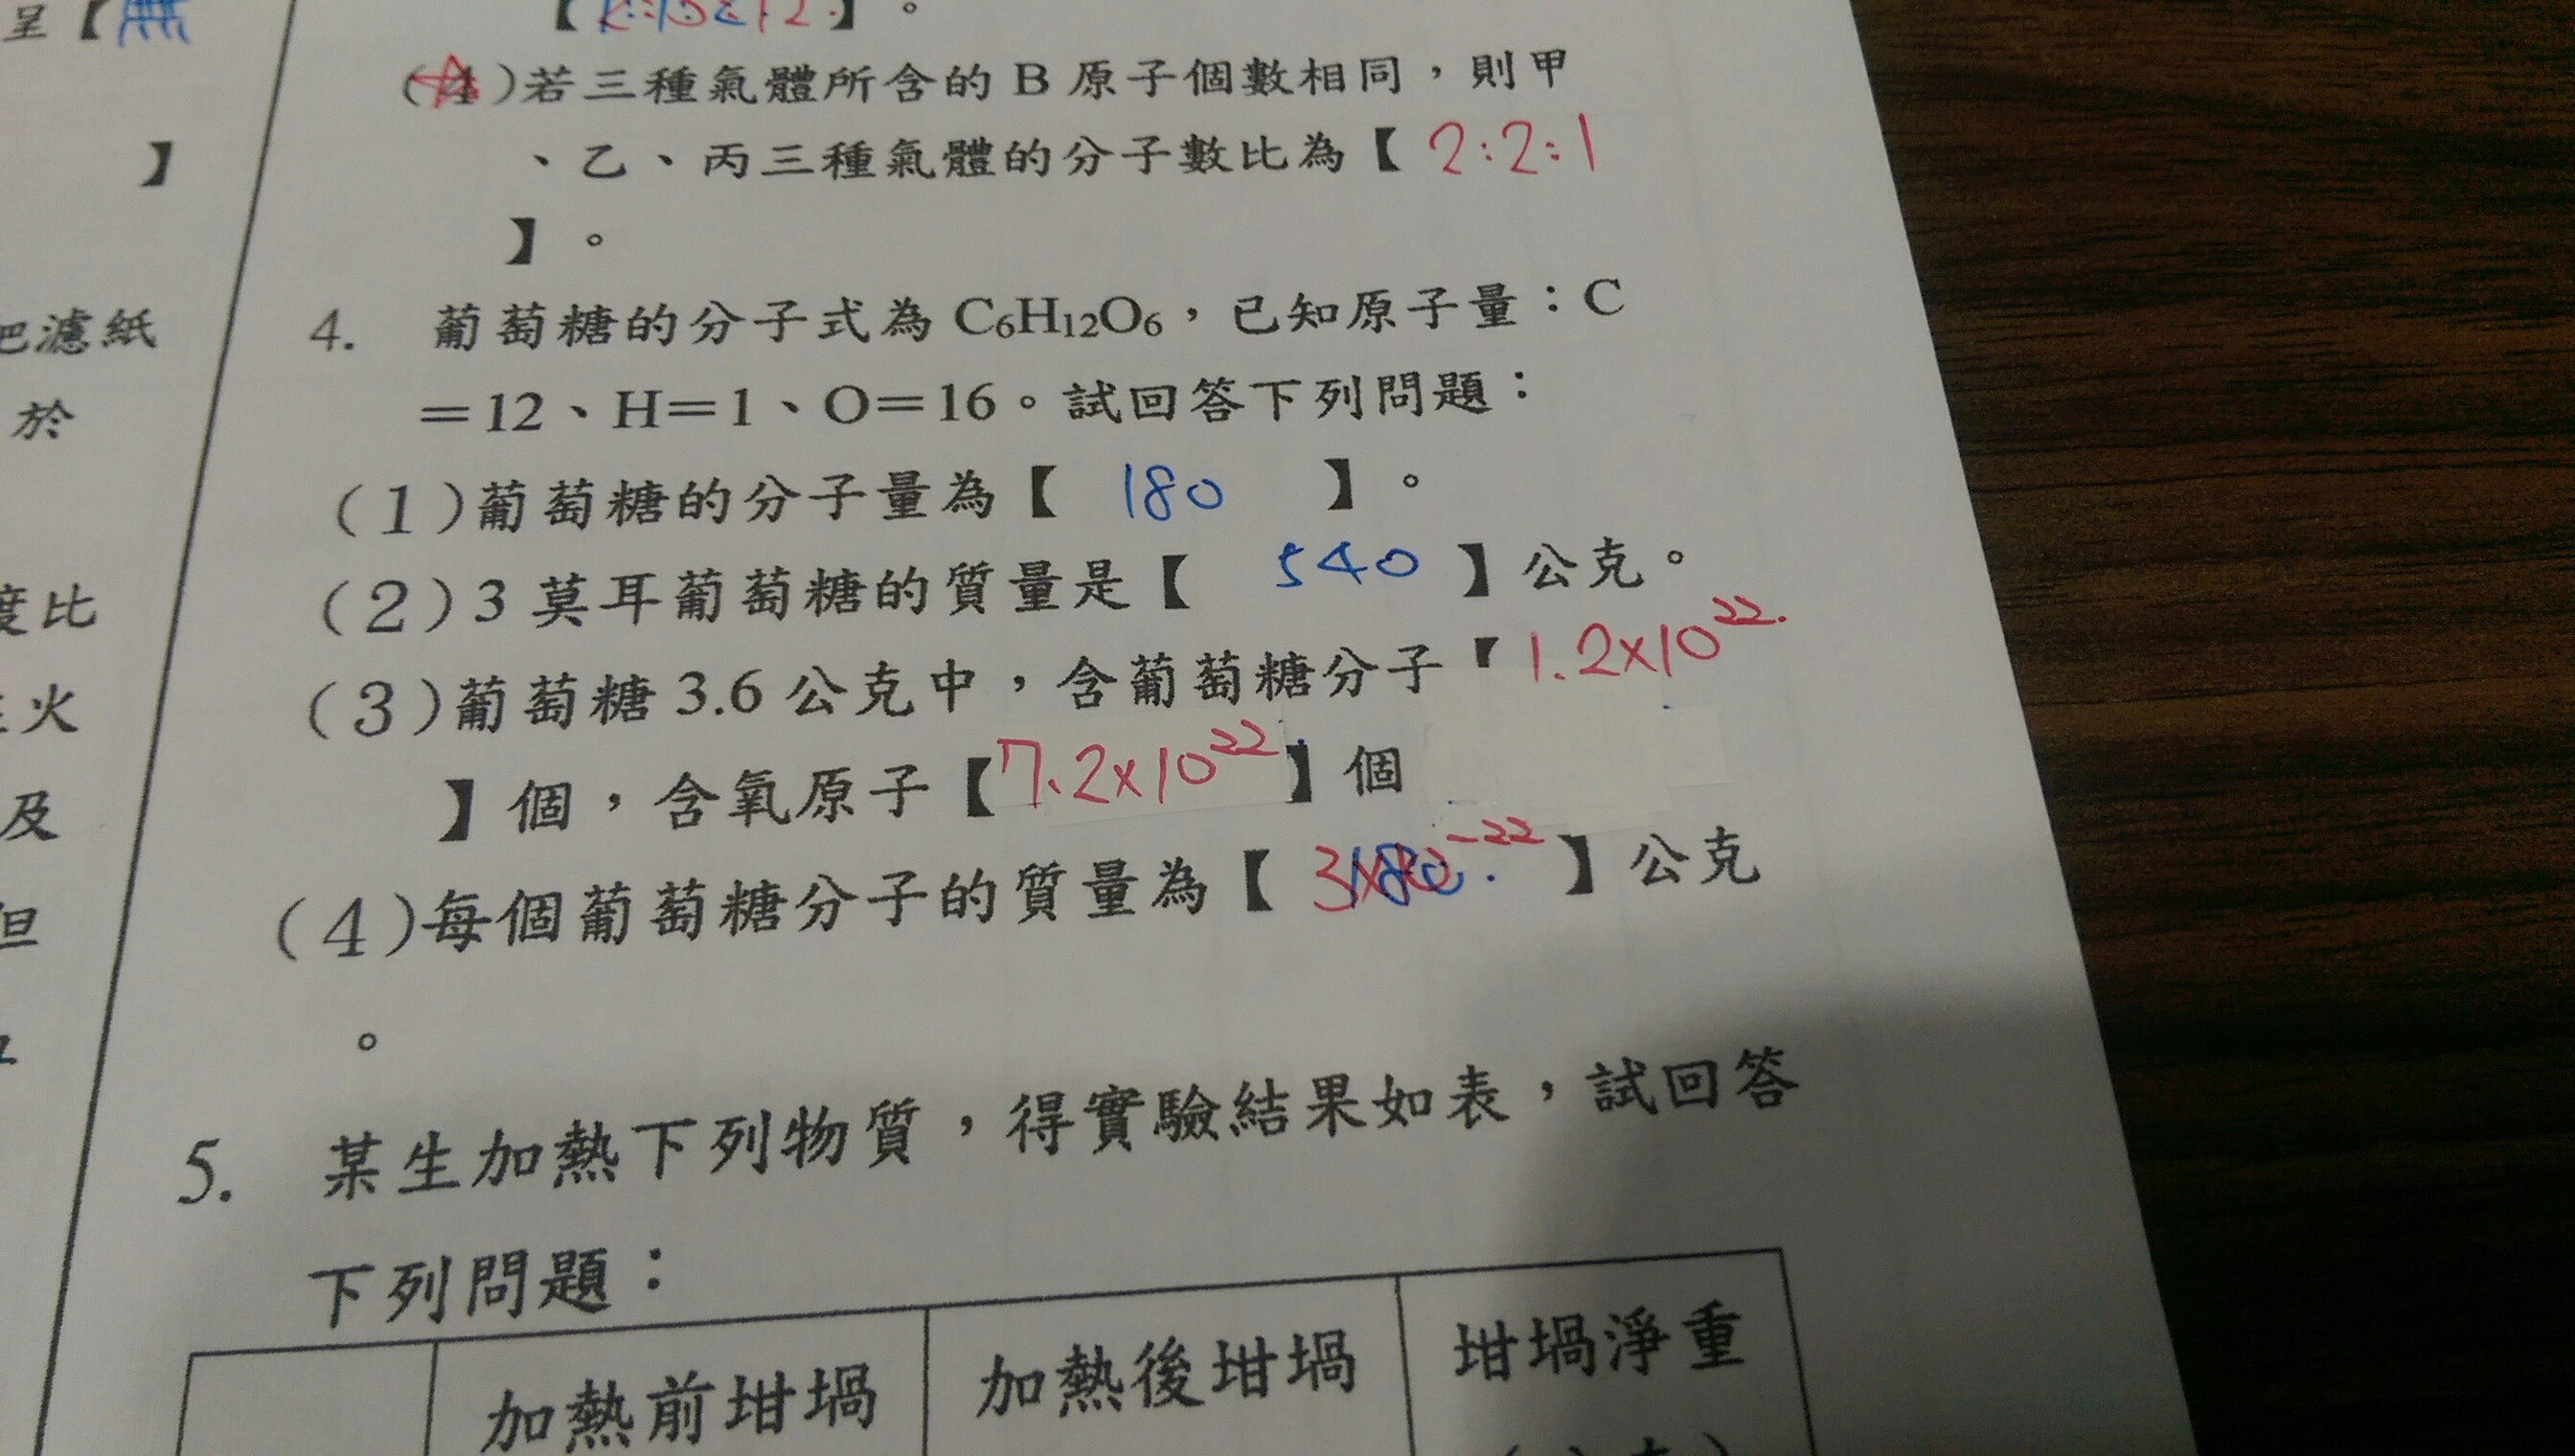 呈【無
】
把濾紙
於
度比
火
及
但
【
】。
(4)若三種氣體所含的 B 原子個數相同，則甲
、乙、丙三種氣體的分子數比為【 2:2:1
】。
4. 葡萄糖的分子式為 C₆H₁₂O₆，已知原子量：C
＝12、H＝1、O＝16。試回答下列問題：
(1)葡萄糖的分子量為【 180 】。
(2)3 莫耳葡萄糖的質量是【 540 】公克。
(3)葡萄糖 3.6 公克中，含葡萄糖分子【 1.2×10²².
】個，含氧原子【7.2×10²²】個
(4)每個葡萄糖分子的質量為【 3×10⁻²² 】公克
。
5. 某生加熱下列物質，得實驗結果如表，試回答
下列問題：
加熱前坩堝
加熱後坩堝
坩堝淨重